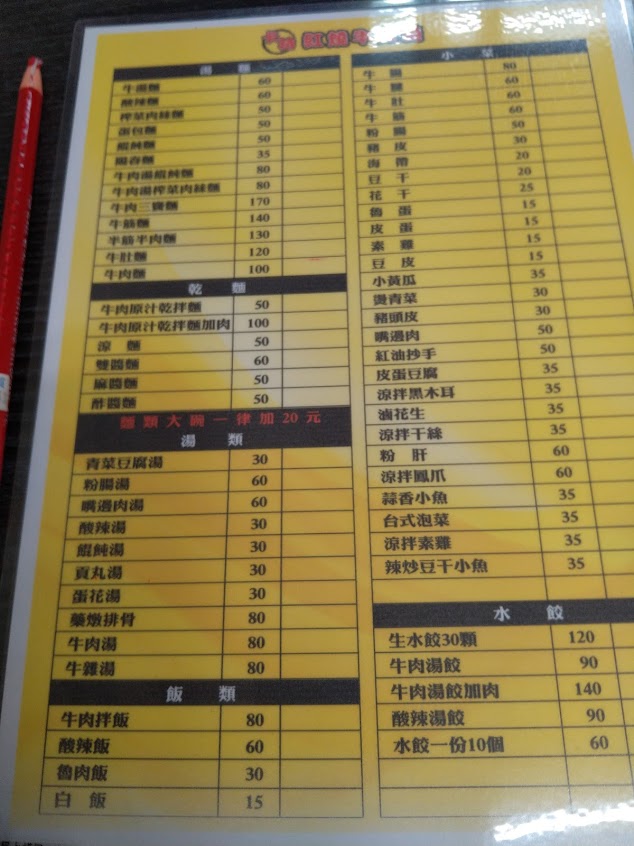 紅燒牛
湯 麵
牛湯麵 60
酸辣麵 60
榨菜肉絲麵 50
蛋包麵 50
餛飩麵 50
陽春麵 35
牛肉湯餛飩麵 80
牛肉湯榨菜肉絲麵 80
牛肉三寶麵 170
牛筋麵 140
半筋半肉麵 130
牛肚麵 120
牛肉麵 100
乾 麵
牛肉原汁乾拌麵 50
牛肉原汁乾拌麵加肉 100
涼 麵 50
雙醬麵 60
麻醬麵 50
酢醬麵 50
麵類大碗一律加20元
湯 類
青菜豆腐湯 30
粉腸湯 60
嘴邊肉湯 60
酸辣湯 30
餛飩湯 30
貢丸湯 30
蛋花湯 30
藥燉排骨 80
牛肉湯 80
牛雜湯 80
飯 類
牛肉拌飯 80
酸辣飯 60
魯肉飯 30
白 飯 15
小 菜
牛 腩 80
牛 腱 60
牛 肚 60
牛 筋 60
粉 腸 50
豬 皮 30
海 帶 20
豆 干 20
花 干 25
魯 蛋 15
皮 蛋 15
素 雞 15
豆 皮 15
小黃瓜 35
燙青菜 30
豬頭皮 30
嘴邊肉 50
紅油抄手 50
皮蛋豆腐 35
涼拌黑木耳 35
滷花生 35
涼拌干絲 35
粉 肝 60
涼拌鳳爪 60
蒜香小魚 35
台式泡菜 35
涼拌素雞 35
辣炒豆干小魚 35
水 餃
生水餃30顆 120
牛肉湯餃 90
牛肉湯餃加肉 140
酸辣湯餃 90
水餃一份10個 60